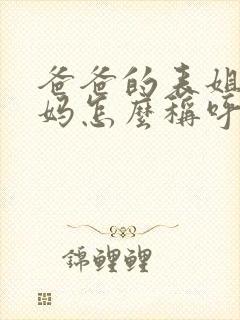 爸爸的表姐
妈怎麼稱呼
錦鯉鯉